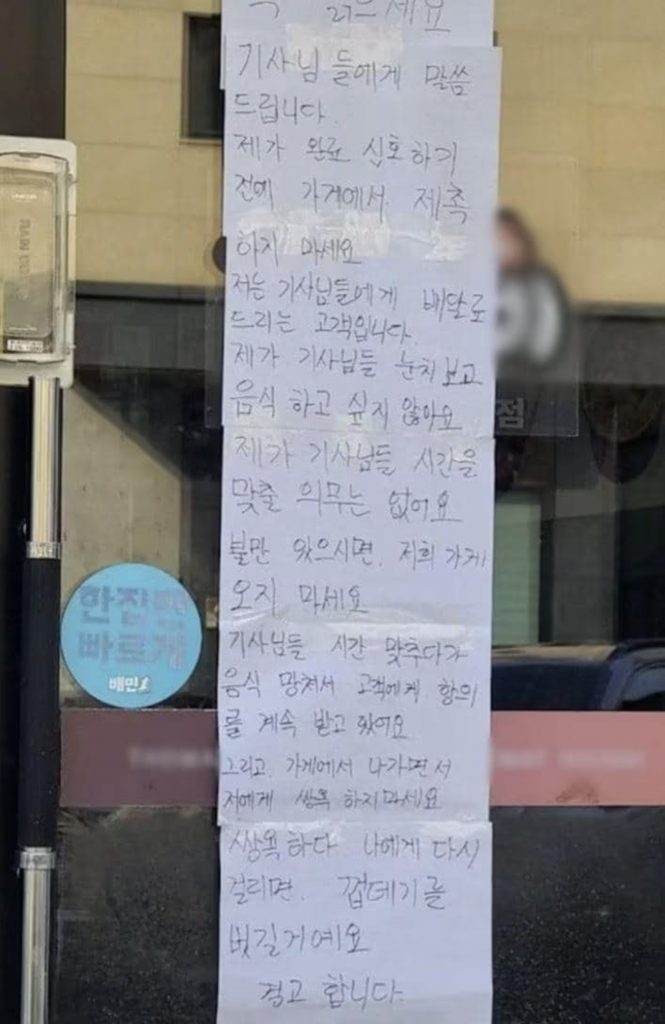 꼭 읽으세요
기사님 들에게 말씀
드립니다.
제가 완료 신호하기
전에 가게에서 제촉
하지 마세요
저는 기사님들에게 배달로
드리는 고객입니다.
제가 기사님들 눈치보고
음식 하고 싶지 않아요
제가 기사님들 시간을
맞출 의무는 없어요
불만 있으시면. 저희 가게
오지 마세요
기사님들 시간 맞추다가
음식 망쳐서 고객에게 항의
를 계속 받고 있어요
그리고. 가게에서 나가면서
저에게 쌍욕 하지마세요
쌍욕하다 나에게 다시
걸리면. 껍데기를
벗길거예요
경고 합니다.
점
한집만
빠르게
배민1